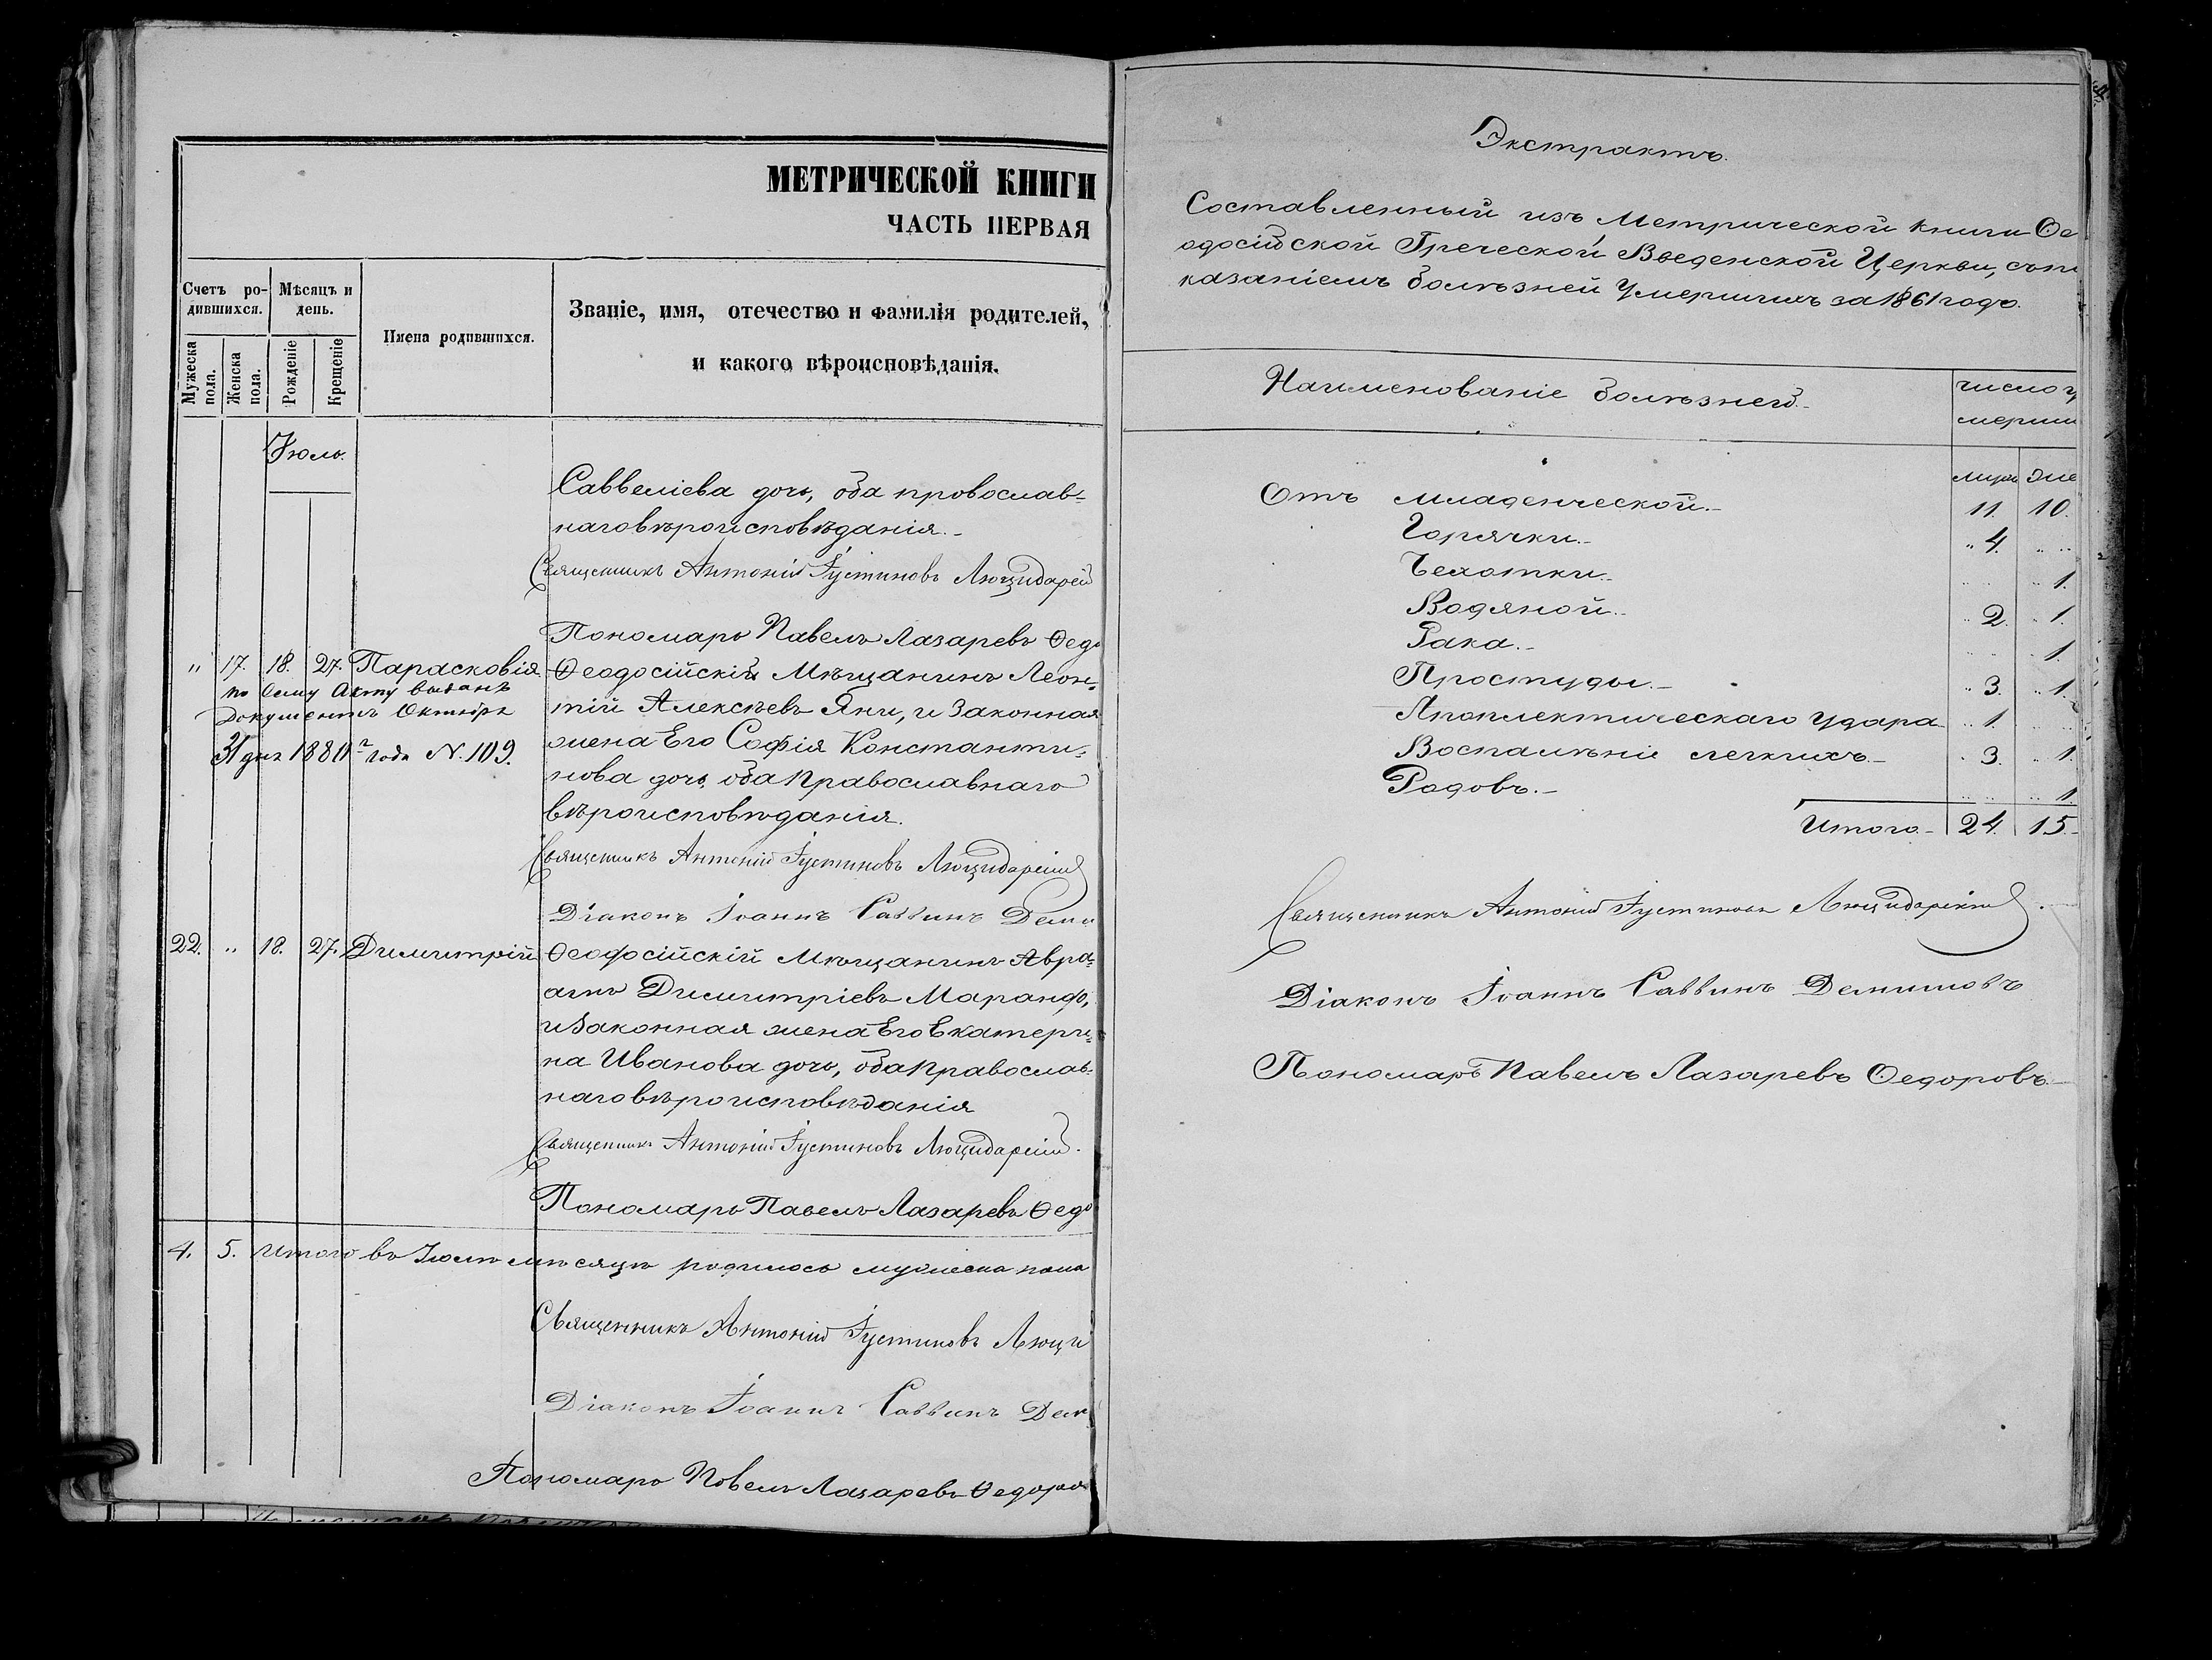 МЕТРИЧЕСКОЙ КНИГИ
ЧАСТЬ ПЕРВАЯ
Счетъ ро-
дившихся.
Мѣсяцъ и
день.
Имена родившихся.
Званіе, имя, отечество и фамилія родителей,
и какого вѣроисповѣданія.
Мужеска
пола.
Женска
пола.
Рожденіе
Крещеніе
Іюль.
Саввеліева дочь, оба провослав-
наго вѣроисповѣданія.
Священникъ Антоній Іустиновъ Люцидарскій
Пономарь Павелъ Лазаревъ Ѳедо
„ 17. 18. 27. Парасковія Ѳеодосійскій Мѣщанинъ Леон-
по сему Акту выданъ
документъ Октября
31 дня 1881 г. года N. 109.
тій Алексѣевъ Яни, и законная
жена Его Софія Константи-
нова дочь, оба православнаго
вѣроисповѣданія.
Священникъ Антоній Іустиновъ Люцидарскій
Діаконъ Іоаннъ Саввинъ Деми
22. „ 18. 27. Димитрій Ѳеодосійскій мѣщанинъ Авра-
амъ Димитріевъ Марандо,
и законная жена Его Екатери-
на Иванова дочь, оба православ-
наго вѣроисповѣданія
Священникъ Антоній Іустиновъ Люцидарскій.
Пономарь Павелъ Лазаревъ Ѳедо
4. 5. Итого въ Іюлѣ мѣсяцѣ родилось мужеска пола
Священникъ Антоній Іустиновъ Люци
Діаконъ Іоаннъ Саввинъ Дем
Пономарь Павелъ Лазаревъ Ѳедоров
Экстрактъ.
Составленный изъ Метрической книги Ѳе
одосійской Греческой Введенской Церкви, съ по
казаніемъ болѣзней Умершихъ за 1861 годъ.
Наименованіе болѣзней.
число у
мерши
муж. же
Отъ младенческой. 11. 10.
Горячки. „ 4. „ „
Чехотки. „ „ 1.
Водяной. „ 2. „ 1.
Рака. „ „ 1.
Простуды. „ 3. „ 1.
Апоплектическаго удара „ 1. „ „
Воспалѣніе легкихъ. „ 3. „ 1.
Родовъ. „ „ 1.
Итого 24. 15.
Священникъ Антоній Іустиновъ Люцидарскій.
Діаконъ Іоаннъ Саввинъ Демишовъ
Пономарь Павелъ Лазаревъ Ѳедоровъ.